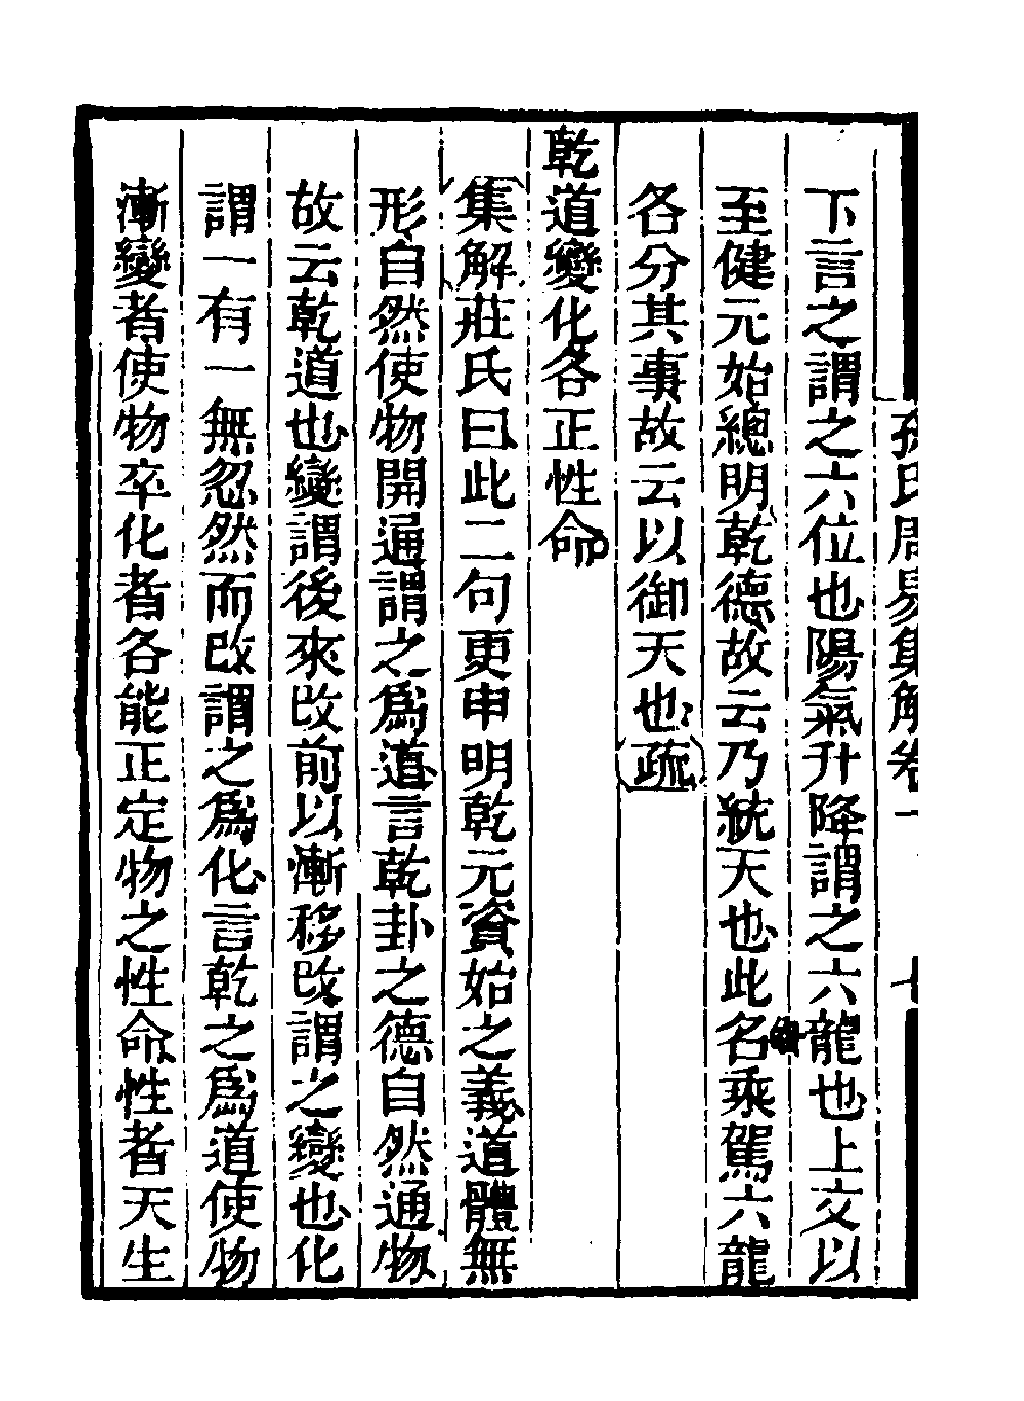 孫氏周易集解卷一 七
下言之謂之六位也陽氣升降謂之六龍也上文以
至健元始總明乾德故云乃統天也此名乘駕六龍
各分其事故云以御天也疏
乾道變化各正性命
集解莊氏曰此二句更申明乾元資始之義道體無
形自然使物開通謂之爲道言乾卦之德自然通物
故云乾道也變謂後來改前以漸移改謂之變也化
謂一有一無忽然而改謂之爲化言乾之爲道使物
漸變者使物卒化者各能正定物之性命性者天生